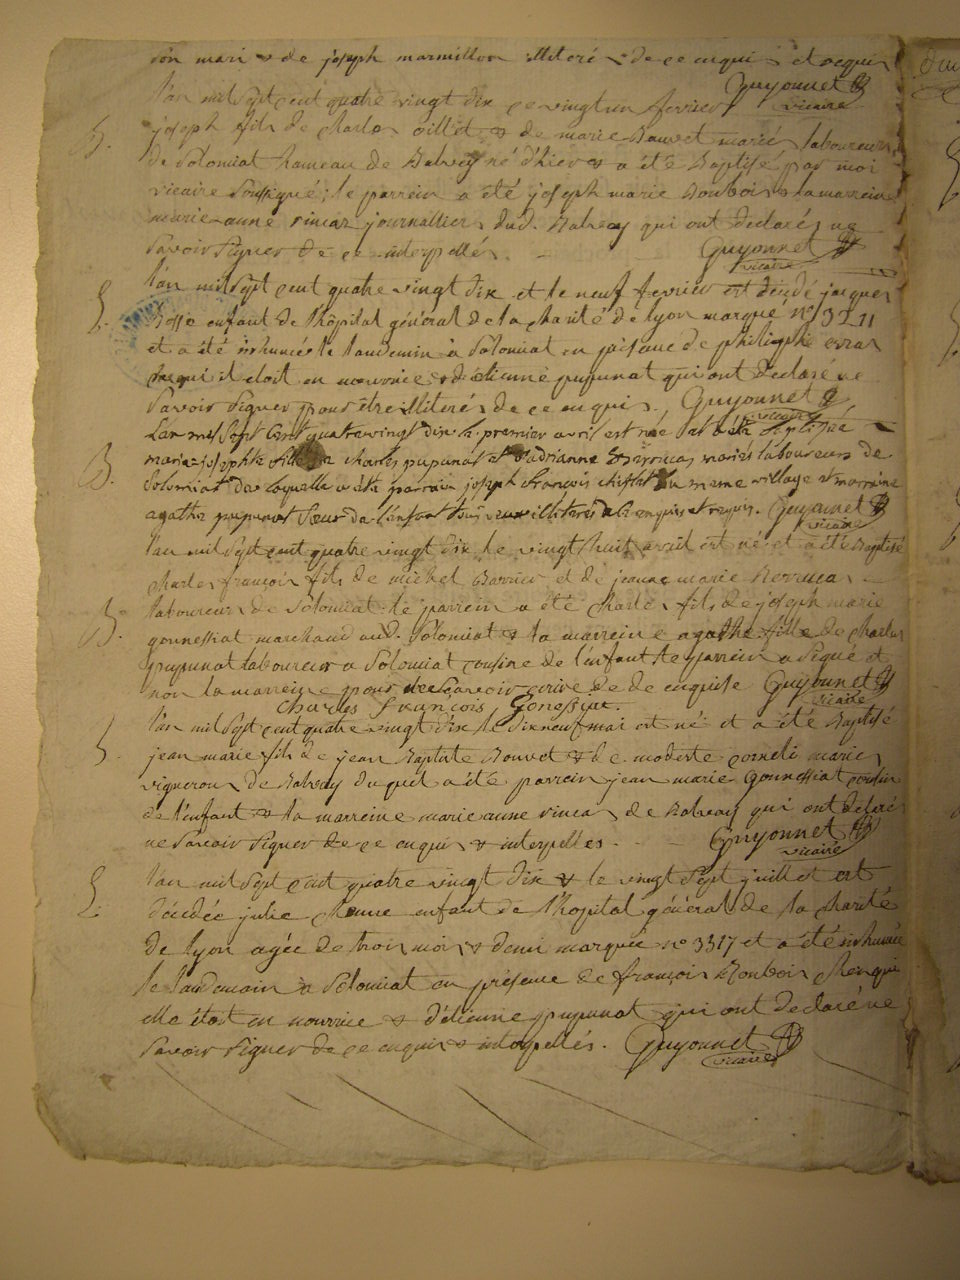 son mari & de joseph marmillon illiteré de ce enquis et requis
Guyonnet
vicaire
l'an mil sept cent quatre vingt dix ce vingt un fevrier
B. joseph fils de charles oillet & de marie Bauvet mariés laboureurs
de Solomiat hameau de Balvay né d'hier & a été Baptisé par moi
vicaire soussigné; le parrein a été joseph marie Bonbois & la marreine
marie anne vincent journallier dud. Balvay qui ont declarés ne
savoir signer de ce interpellés. Guyonnet
vicaire
S. l'an mil sept cent quatre vingt dix et le neuf fevrier est décédé jacques
Rosse enfant de l'hôpital général de la charité de lyon marqué n° 3211
et a été inhumé le landemin à Solomiat en présence de philippe
chez qui il etoit en nourrice & d'étienne pupunat qui ont declaré ne
savoir signer pour être illiterés de ce enquis. Guyonnet
vicaire
L'an mil sept cent quatrevingt dix le premier avril est née et a été baptisée
B. marie-josephte fille de charles pupunat et d'adrianne mariés laboureurs de
Solomiat de laquelle a été parrain joseph françois chifflet du meme village et marraine
agathe pupunat soeur de l'enfant tous deux illiterés de ce enquis et requis. Guyonnet
vicaire
l'an mil sept cent quatre vingt dix le vingt huit avril est né et a été Baptisé
charles françois fils de michel Berrier et de jeanne marie
laboureurs de Solomiat: le parrein a été charles fils de joseph marie
B. gonnessiat marchand aud. Solomiat & la marreine agathe fille de charles
pupunat laboureur a Solomiat cousine de l'enfant le parrein a signé et
non la marreine pour ne savoir écrire de ce enquise Guyonnet
vicaire
Charles François
l'an mil sept cent quatre vingt dix le dixneuf mai est né et a été Baptisé
B. jean marie fils de jean Baptiste Bouvet & de modeste mariés
vigneron de Balvay duquel a été parrein jean marie Gonnessiat cousin
de l'enfant & la marreine marie anne vincent de Balvay qui ont declaré
ne savoir signer de ce enquis & interpelles. Guyonnet
vicaire
S. l'an mil sept cent quatre vingt dix & le vingt sept juillet est
décédée julie enfant de l'hopital général de la charité
de lyon agée de trois mois & demi marquée n° 3317 et a été inhumée
le landemain à Solomiat en présence de françois Bonbois chez qui
elle étoit en nourrice & d'étienne pupunat qui ont declaré ne
savoir signer de ce enquis & interpellés. Guyonnet
vicaire